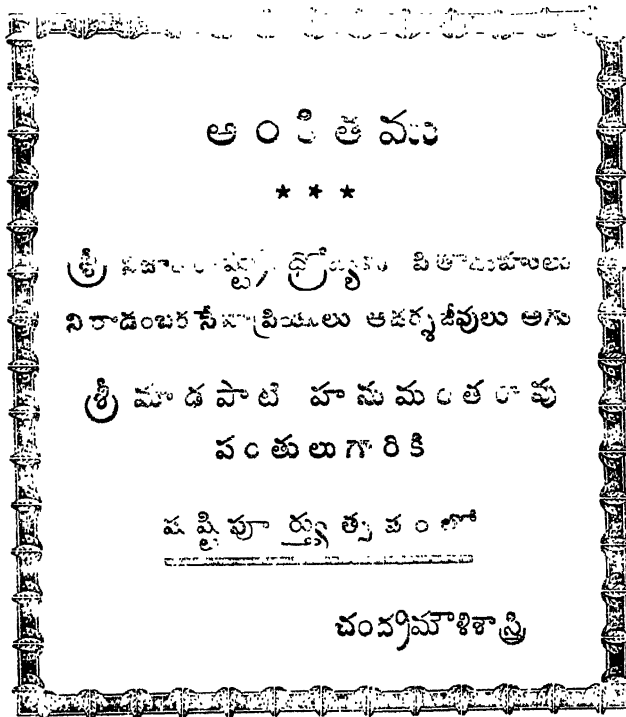 అంకితము
★ ★ ★
శ్రీ నిజాంరాష్ట్రాంధ్రోద్యమ పితామహులు
నిరాడంబర సేవాప్రియులు ఆదర్శజీవులు అగు
శ్రీ మాడపాటి హనుమంతరావు
పంతులుగారికి
షష్టిపూర్త్యుత్సవంలో
చంద్రమౌళిశాస్త్రి